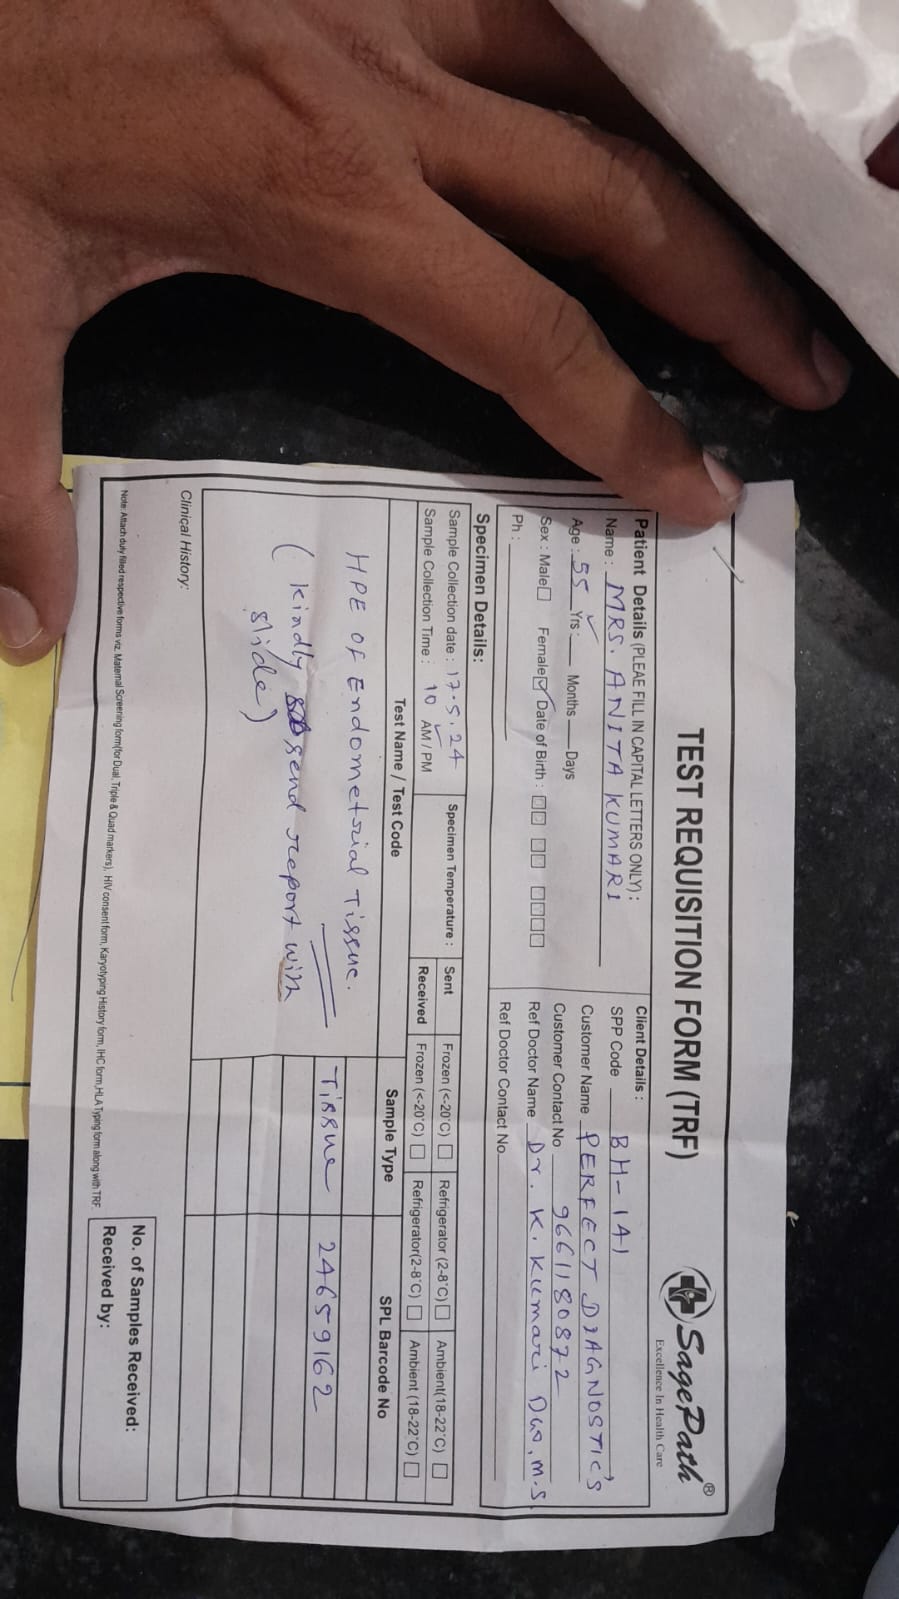 TEST REQUISITION FORM (TRF)
SagePath®
Excellence In Health Care
Patient Details (PLEAE FILL IN CAPITAL LETTERS ONLY) :
Name : MRS. ANITA KUMARI
Age : 55 Yrs : Months Days
Sex : Male Female Date of Birth :
Ph :
Client Details :
SPP Code BH-141
Customer Name PERFECT DIAGNOSTIC'S
Customer Contact No 9661180872
Ref Doctor Name Dr. K. Kumari Das, M.S.
Ref Doctor Contact No.
Specimen Details:
Sample Collection date : 17.5.24
Sample Collection Time : 10 AM / PM
Specimen Temperature :
Sent Frozen (<-20°C) Refrigerator (2-8°C) Ambient(18-22°C)
Received Frozen (<-20°C) Refrigerator(2-8°C) Ambient (18-22°C)
Test Name / Test Code Sample Type SPL Barcode No
HPE OF Endometrial Tissue. Tissue 24659162
( Kindly send report with
slide)
Clinical History:
Note: Attach duly filled respective forms viz. Maternal Screening form(for Dual, Triple & Quad markers), HIV consent form, Karyotyping History form, IHC form, HLA Typing form along with TRF
No. of Samples Received:
Received by: